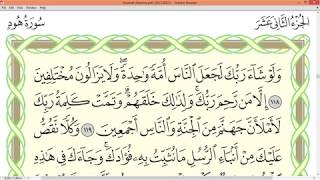 الجزء الثاني عشر
سورة هود
وَلَوْ شَاءَ رَبُّكَ لَجَعَلَ النَّاسَ أُمَّةً وَاحِدَةً ۖ وَلَا يَزَالُونَ مُخْتَلِفِينَ
١١٨ إِلَّا مَن رَّحِمَ رَبُّكَ ۚ وَلِذَٰلِكَ خَلَقَهُمْ ۗ وَتَمَّتْ كَلِمَةُ رَبِّكَ
لَأَمْلَأَنَّ جَهَنَّمَ مِنَ الْجِنَّةِ وَالنَّاسِ أَجْمَعِينَ ١١٩ وَكُلًّا نَّقُصُّ
عَلَيْكَ مِنْ أَنبَاءِ الرُّسُلِ مَا نُثَبِّتُ بِهِ فُؤَادَكَ ۚ وَجَاءَكَ فِي هَٰذِهِ